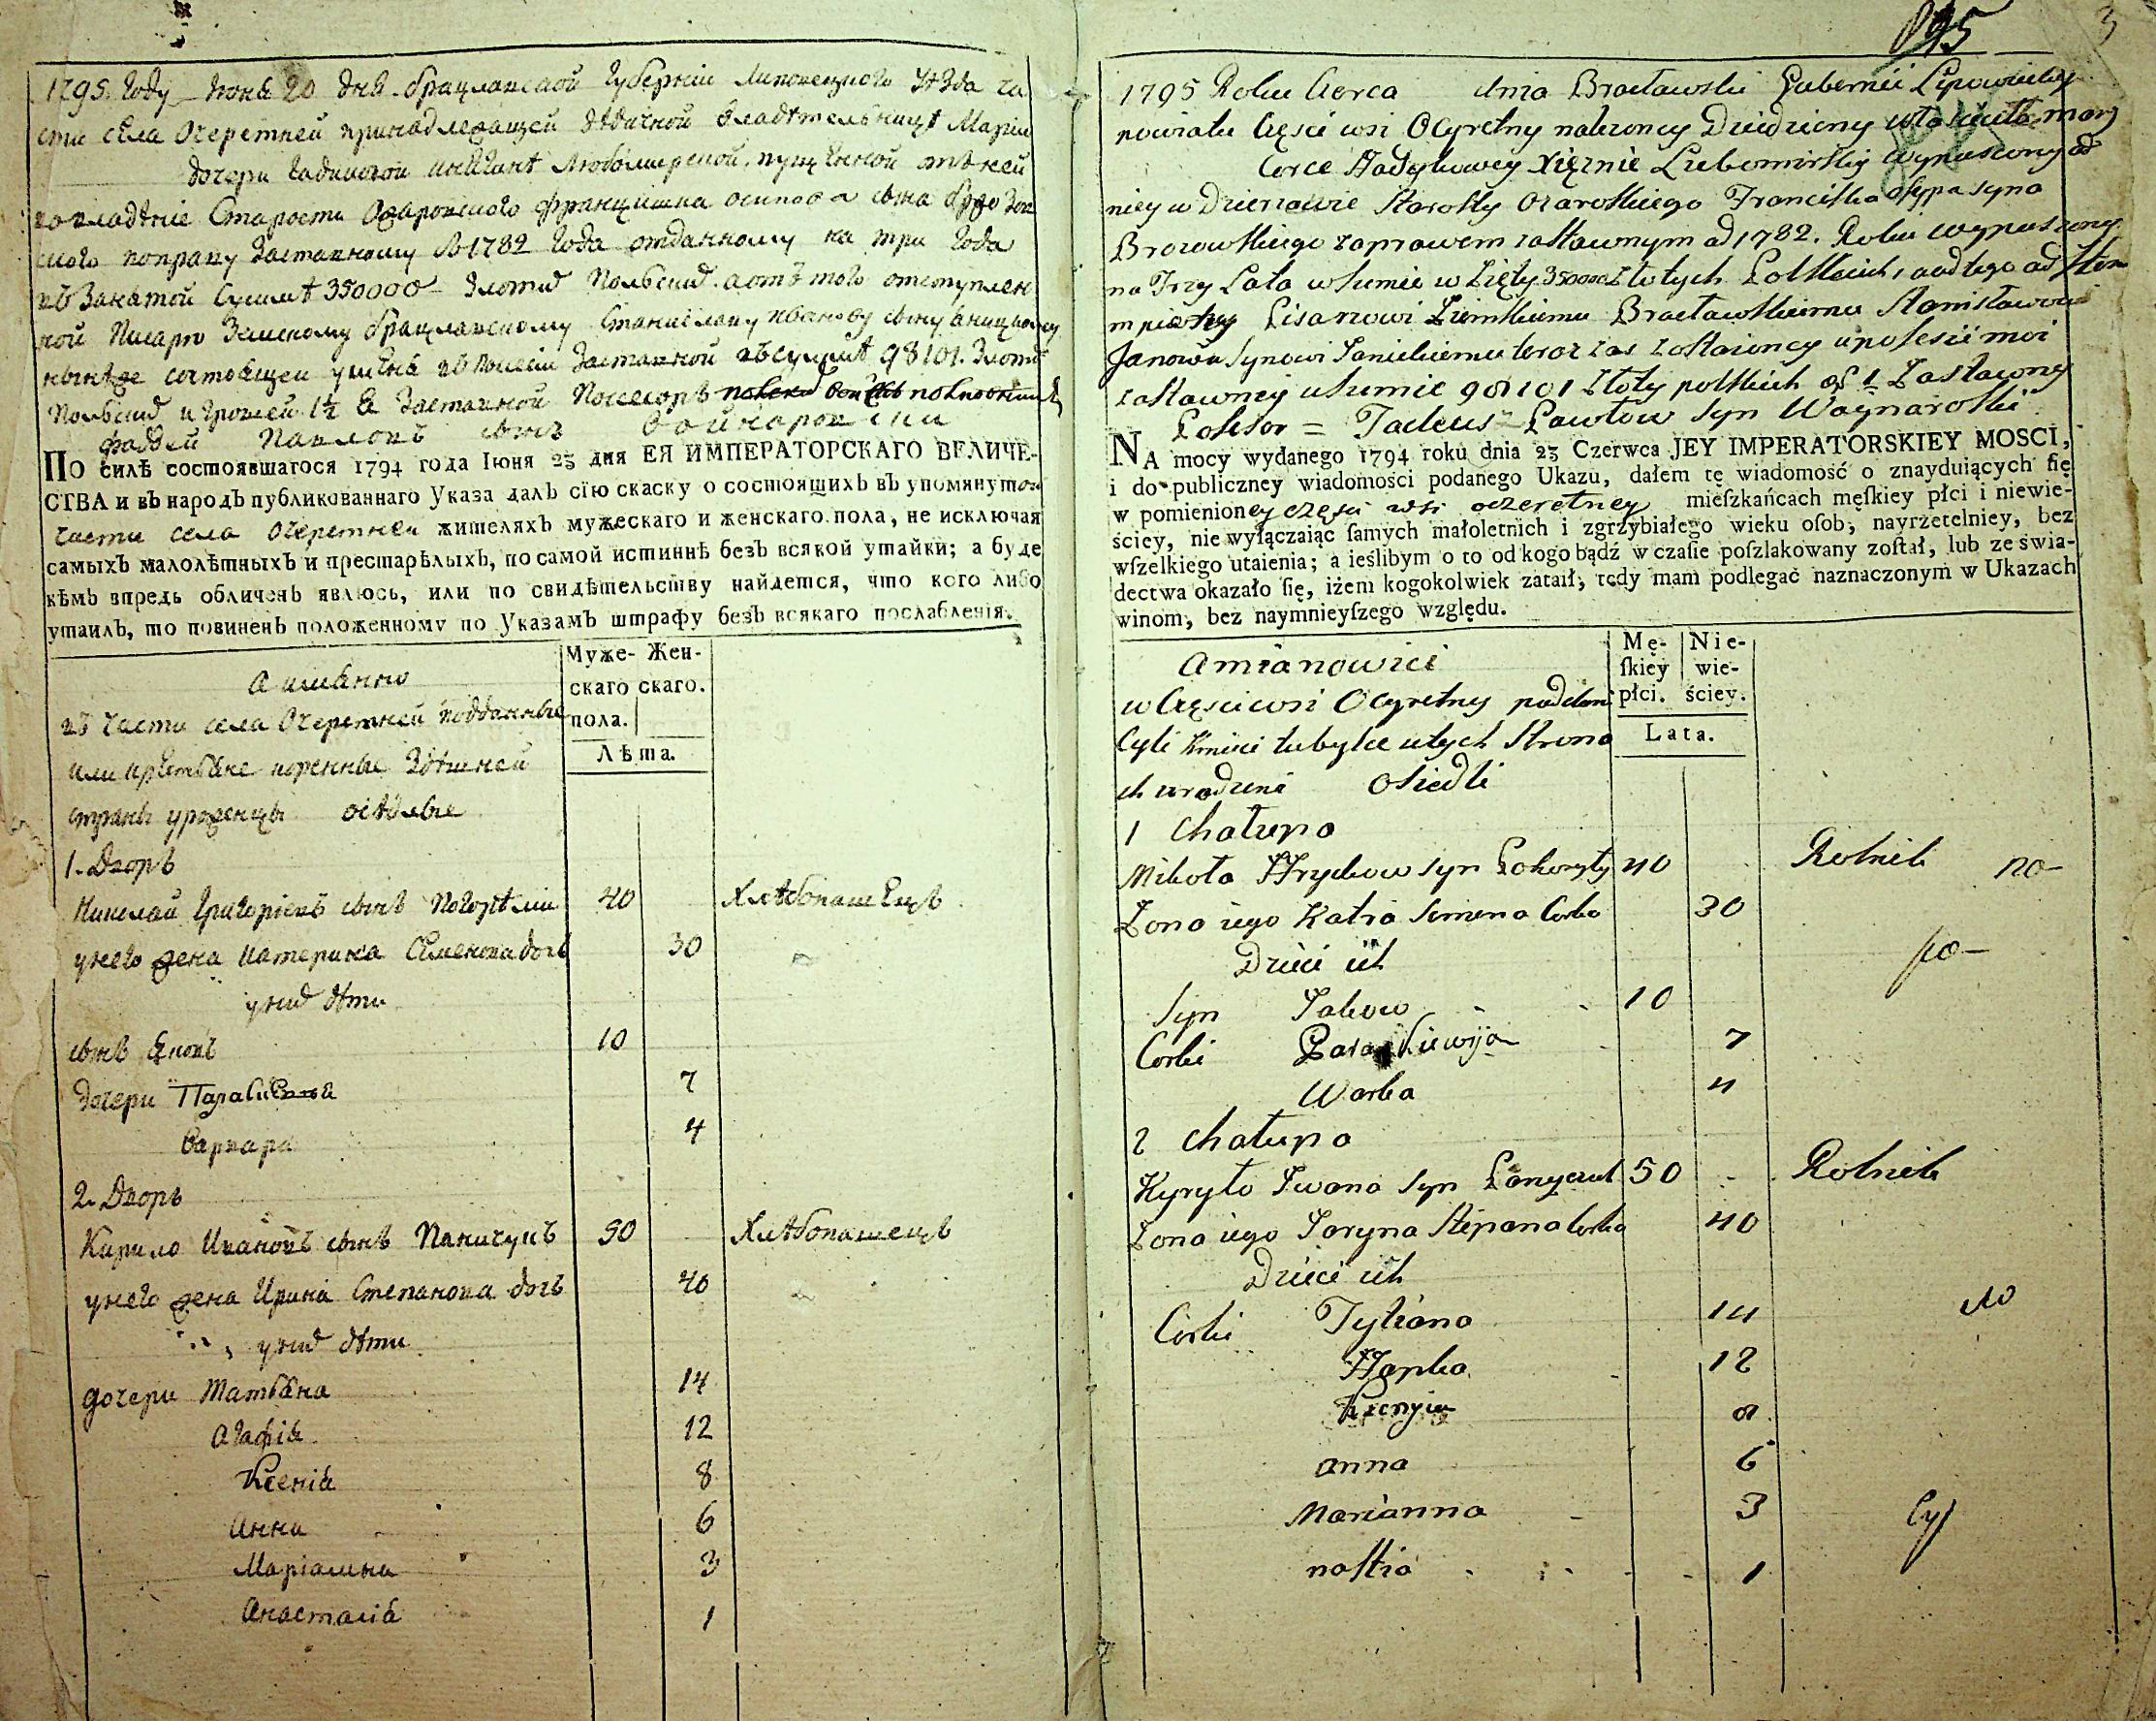 1795 Году Июня 20 дня Брацлавской Губерніи Липовецкого Уѣзда ча
сти села Очеретней принадлежащей дѣдичной владѣтельницѣ Маріи
дочери княгинѣ Любомирской пущенной отъ ней
во владѣніе Старости Ожаровского Францишка осипова сына
ского поправу Заставному въ 1782 Года отданному на три года
въ Занятой Сумѣ 350000 Злотих Польских а отъ того отступлен
ной Писарю Земскому Брацлавскому Станиславу Иванову сыну Яницкому
нынѣже состоящей у мѣня въ посесіи Заставной въ сумѣ 98101 Злотых
Польских и грошей 1½ Я Заставной Посесоръ
фаддей Павловъ сынъ Войнаровскій
ПО силѣ состоявшагося 1794 года Іюня 23 дня ЕЯ ИМПЕРАТОРСКАГО ВЕЛИЧЕ-
СТВА и въ народъ публикованнаго Указа далъ сію скаску о состоящихъ въ упомянутой
части села Очеретней жителяхъ мужескаго и женскаго пола, не исключая
самыхъ малолѣтныхъ и престарѣлыхъ, по самой истиннѣ безъ всякой утайки; а буде
кѣмъ впредь обличенъ явлюсь, или по свидѣтельству найдется, что кого либо
утаилъ, то повиненъ положенному по Указамъ штрафу безъ всякаго послабленія.
Муже- Жен-
скаго скаго.
пола.
Лѣта.
а имянно
въ части села Очеретней подданные
или крѣстьяне коренные здѣшней
страны уроженцы осѣдлые
1. Дворъ
Николай Григоріевъ сынъ Погорѣлій 40 Хлѣбопашецъ
у него жена Катерина Семенова дочь 30
у них дѣти
сынъ Яковъ 10
дочери Параскевія 7
Варвара 4
2. Дворъ
Кирило Ивановъ сынъ Паничукъ 50 Хлѣбопашецъ
у него жена Ирина Степанова дочь 40
у них дѣти
дочери Татьяна 14
Агафія 12
Ксенія 8
Анна 6
Маріамна 3
Анастасія 1
895
3
1795 Roku Czerca dnia Bracławski Gubernii Lipowieckiy
powiatu Częsci wsi Oczyretny nalezoncy Dziedziczny
Corce Xięznie Lubomirskiy wypusczony od
niey w Dzierzawie Starosty Ozarowskiego Franciszka Osypa syna
Brozowskiego zaprawem zastawnym od 1782. Roku wypusczony
na Trzy Lata w Sumie w Zięty 350000 Złotych Polskich, a od tego
Pisarzowi Ziemskiemu Bracławskiemu Stanisławowi
Janowu Synowi Janickiemu teraz zas zostaioncy u posesii moi
zastawney u Sumie 98101 Złoty polskich Zastawny
Posesor = Tadeus Pawłow Syn Woynaroski
NA mocy wydanego 1794 roku dnia 23 Czerwca JEY IMPERATORSKIEY MOSCI,
i do publiczney wiadomości podanego Ukazu, dałem tę wiadomość o znayduiących ſię
w pomienioney częsci wsi oczeretney mieſzkańcach męſkiey płci i niewie-
ściey, nie wyłączaiąc ſamych małoletnich i zgrzybiałego wieku oſob, nayrzetelniey, bez
wſzelkiego utaienia; a ieślibym o to od kogo bądź w czaſie poſzlakowany zoſtał, lub ze świa-
dectwa okazało ſię, iżem kogokolwiek zataił, tedy mam podlegać naznaczonym w Ukazach
winom, bez naymnieyſzego względu.
Mę- Nie-
ſkiey wie-
płci. ściey.
Lata.
amianowici
w Częsci wsi Oczyretny poddani
Czyli Kmieci tubylce u tych Strona
ch urodzeni Osiedli
1 Chałupa
Mikoła Hryckow Syn Pohoryły 40 Rolnik
Zona iego Katra Semena Corka 30
Dzieci ich
Syn Jakow 10
Corki Paraskiewija 7
Warka 4
2 Chałupa
Kyryło Iwana Syn Panyczuk 50 Rolnik
Zona iego Jaryna Stepana Corka 40
Dzieci ich
Corki Tytiana 14
Hapka 12
Ksenyia 8
Anna 6
Marianna 3
nastia 1